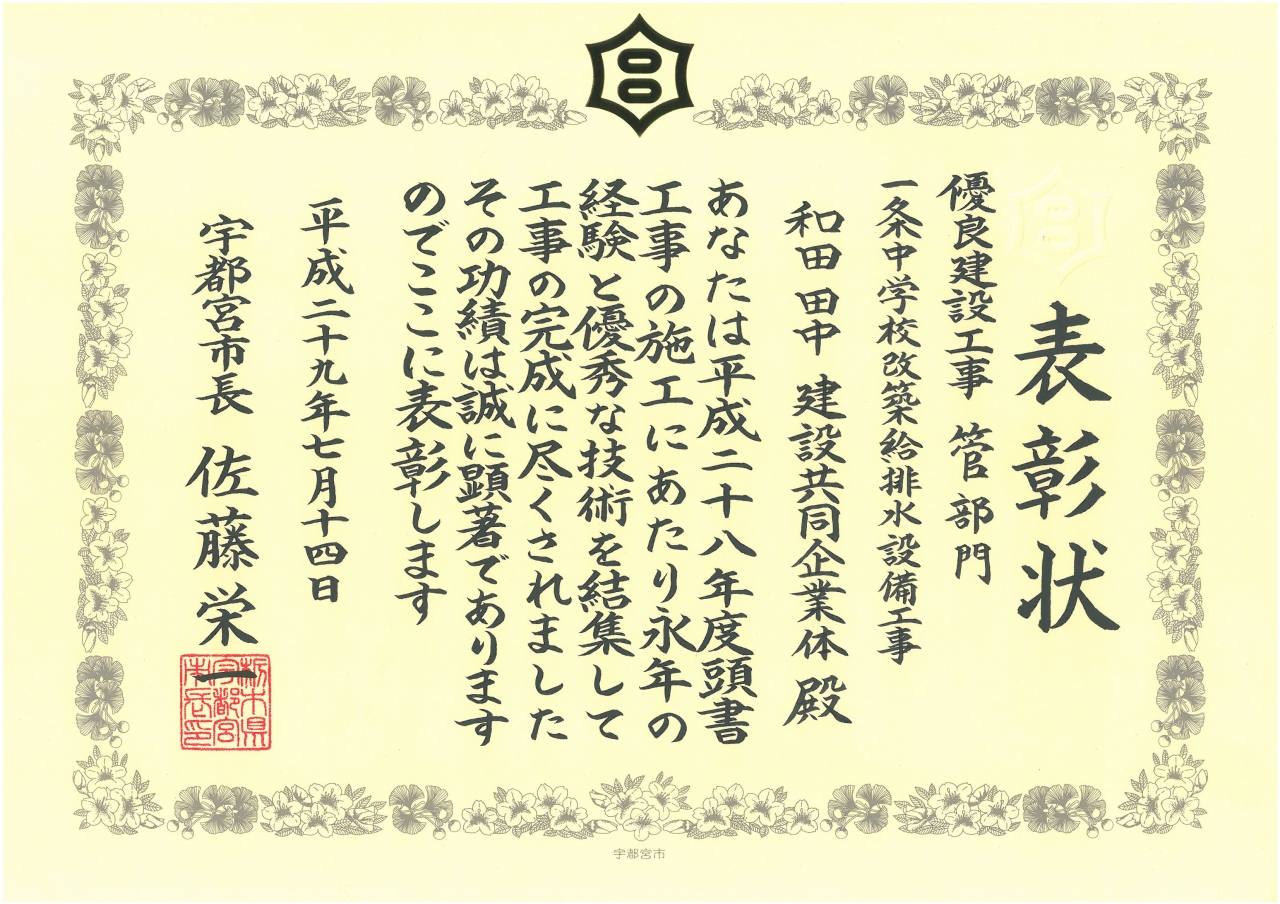 表彰状
優良建設工事 管部門
一条中学校改築給排水設備工事
和田田中 建設共同企業体 殿
あなたは平成二十八年度頭書
工事の施工にあたり永年の
経験と優秀な技術を結集して
工事の完成に尽くされました
その功績は誠に顕著であります
のでここに表彰します
平成二十九年七月十四日
宇都宮市長 佐藤栄一
栃木県
宇都宮
市長印
宇都宮市